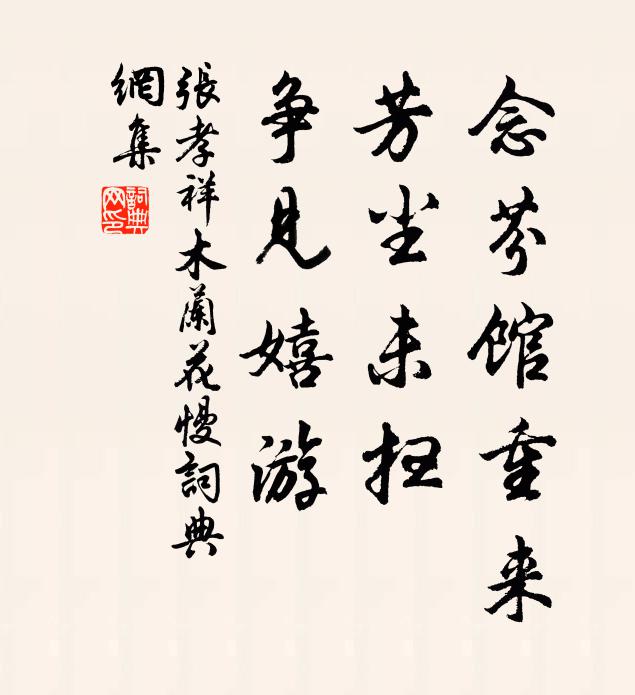 念芬館重来
芳尘未扫
争见嬉游
張孝祥木蘭花慢詞典
網集
詞典网印